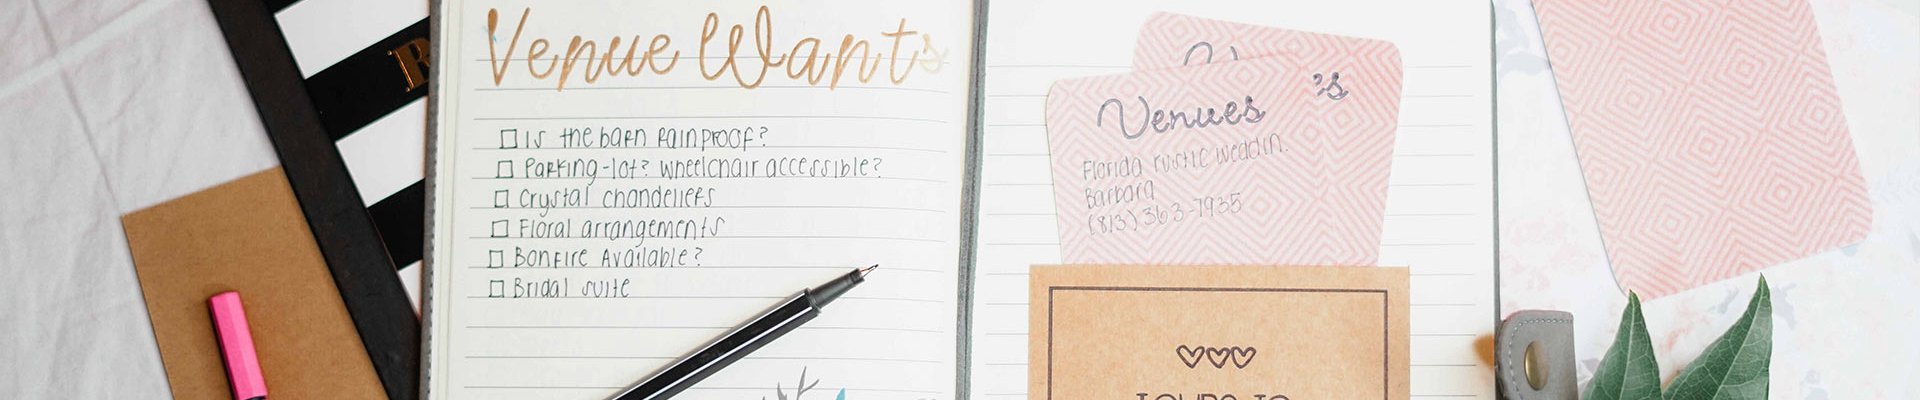 Venue Wants
Is the barn rainproof?
Parking-lot? wheelchair accessible?
Crystal chandeliers
Floral arrangements
Bonfire Available?
Bridal suite
's
Venues
Florida rustic weddin.
Barbara
(813) 363-7935